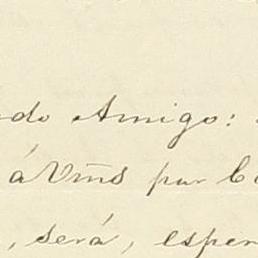 do Amigo:
á Vms por C
, será, esper